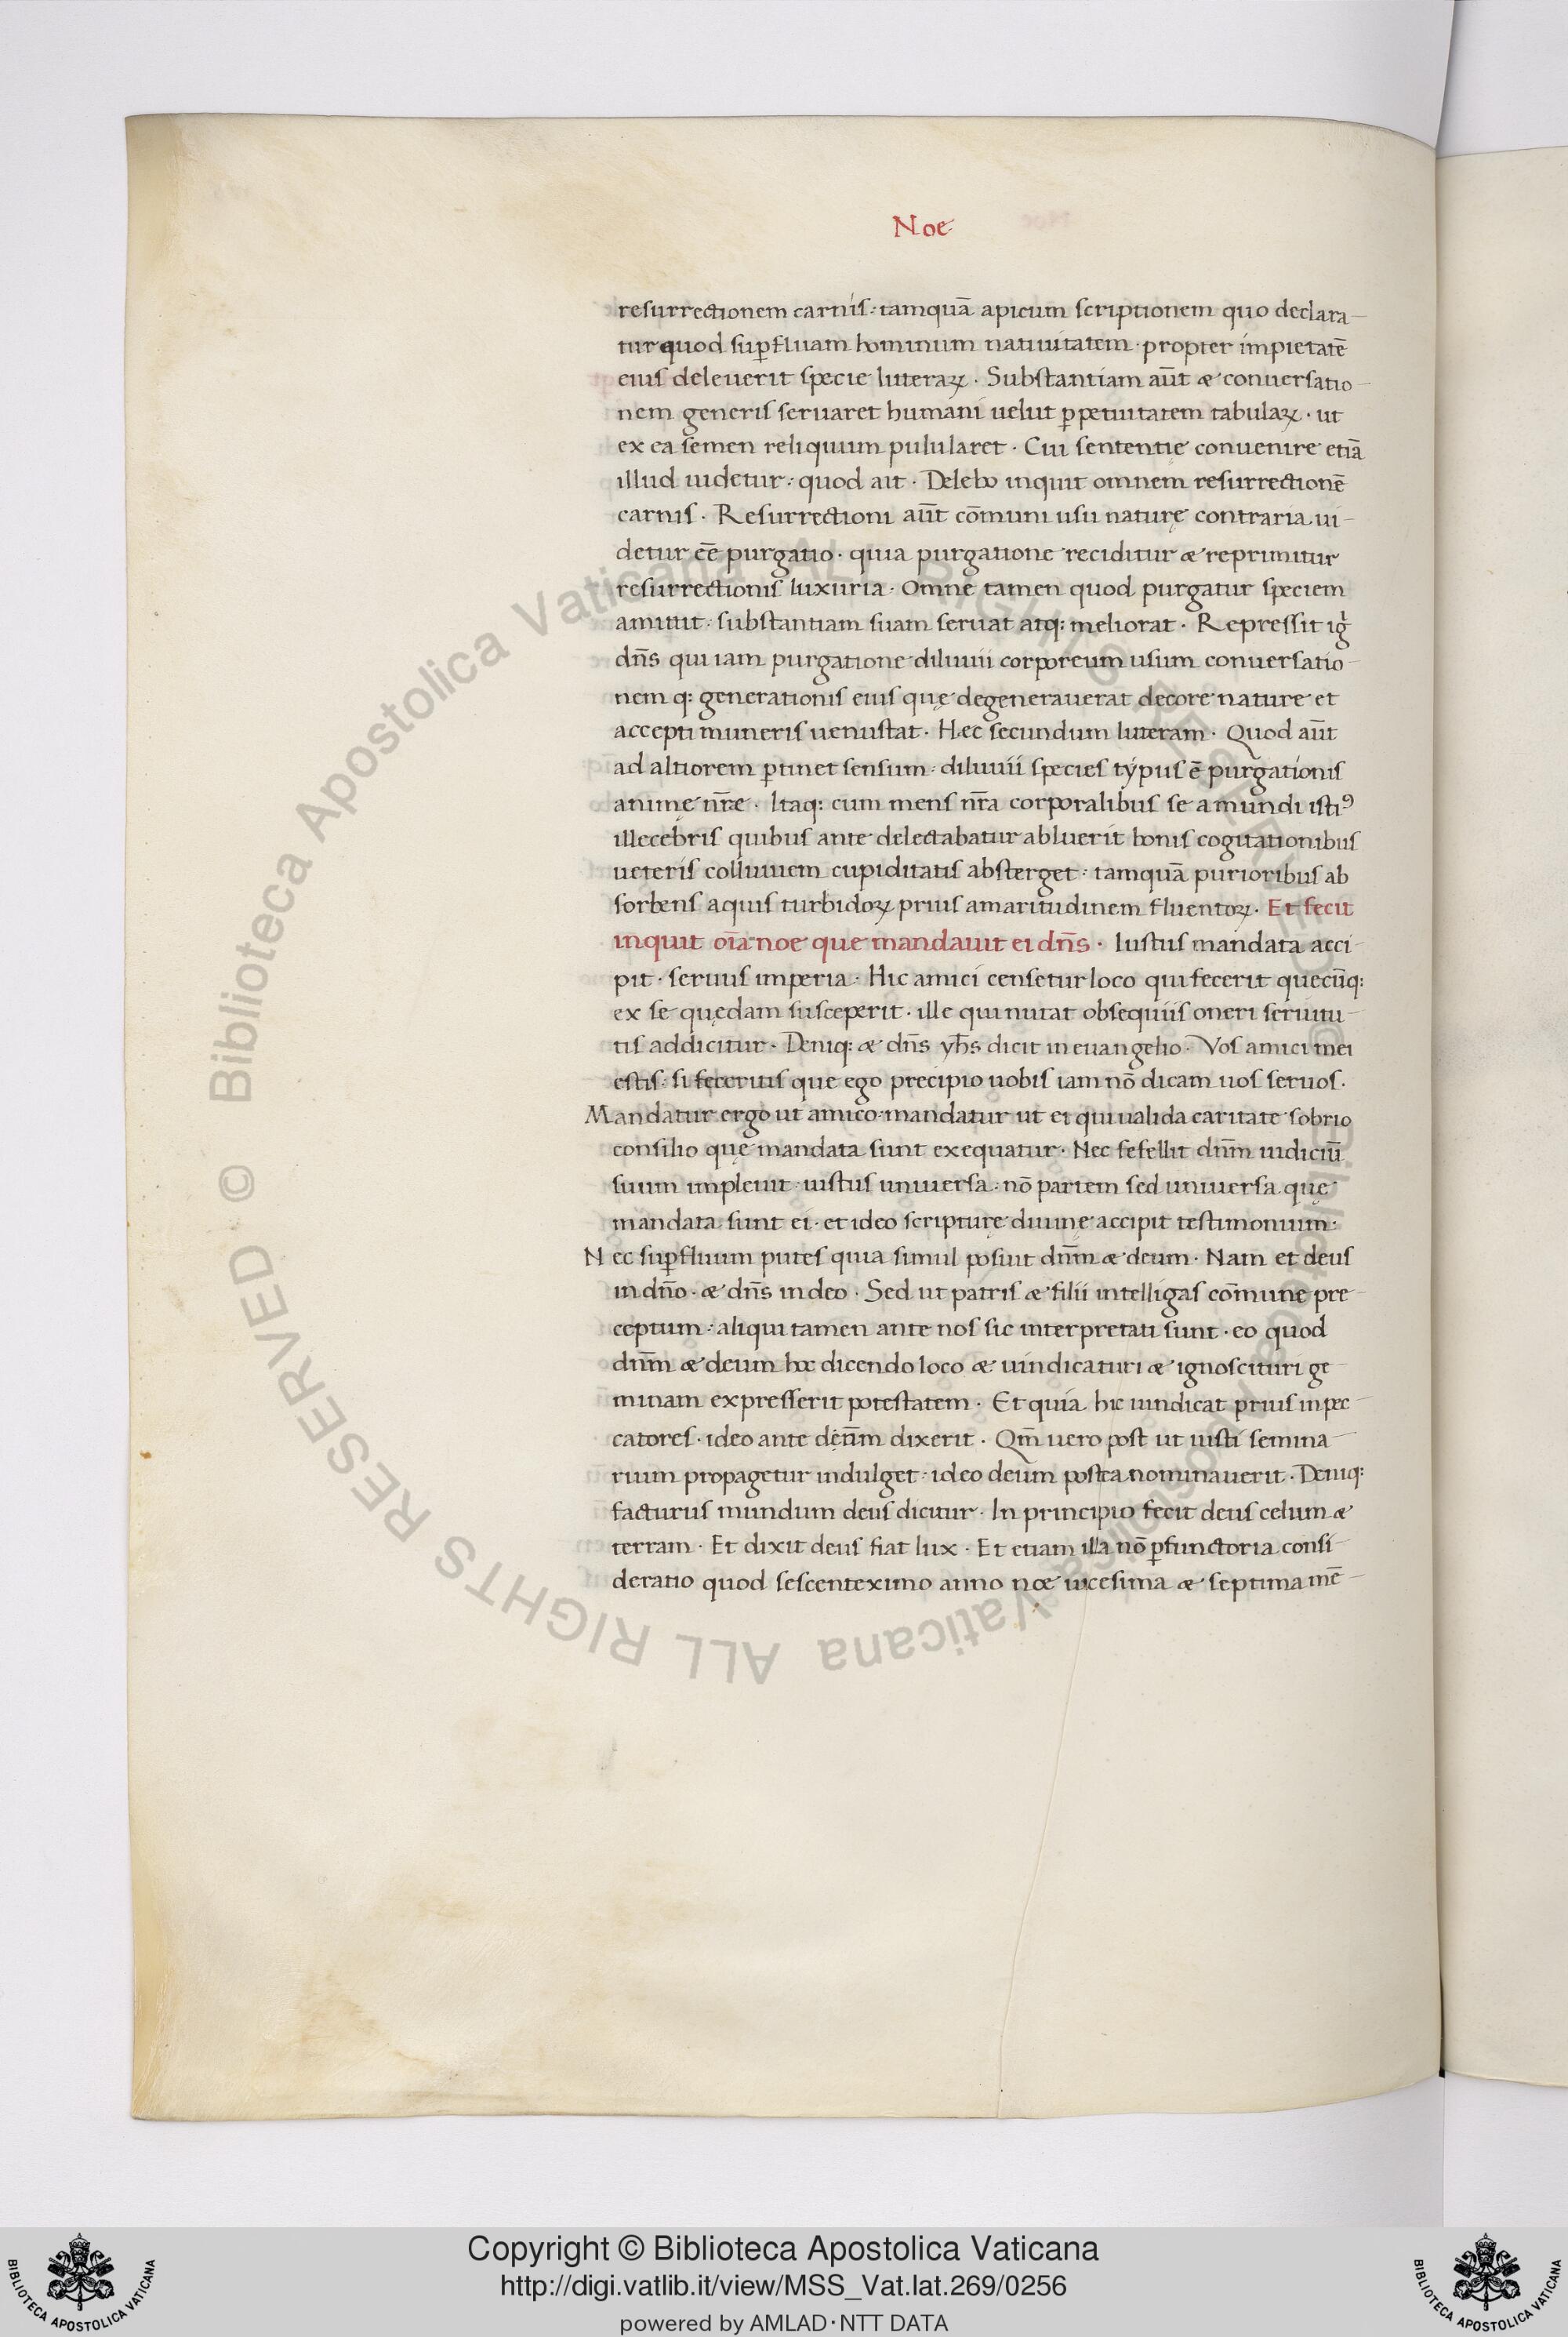 Noe
resurrectionem carnis· tamquā apicum scriptionem quo declara
tur quod suꝑfluam hominum natiuitatem· propter impietatē
eius deleuerit specie litteraꝝ· Substantiam aūt æ conuersatio
nem generis seruaret humani uelut ꝑpetuitatem tabulaꝝ· ut
ex ea semen reliquum pulularet· Cui sententię conuenire etiā
illud uidetur· quod ait· Delebo inquit omnem resurrectionē
carnis· Resurrectioni aūt cōmuni usu naturę contraria ui
detur eē purgatio· quia purgatione reciditur æ reprimitur
resurrectionis luxuria· Omne tamen quod purgatur speciem
amittit· substantiam suam seruat atq: meliorat· Repressit igͥ
dn̄s qui iam purgatione diluuii corporeum usum conuersatio
nem q: generationis eius quę degenerauerat decore nature et
accepti muneris uenustat· Hec secundum litteram· Quod aūt
ad altiorem ꝑtinet sensum· diluuii species typus ē purgationis
animę nr̄æ· Itaq: cum mens nr̄a corporalibus se a mundi istiꝰ
illecebris quibus ante delectabatur abluerit bonis cogitationibus
ueteris colluuiem cupiditatis absterget· tamquā purioribus ab
sorbens aquis turbidoꝝ prius amaritudinem fluentoꝝ· Et fecit
inquit oīa noe que mandauit ei dn̄s· Iustus mandata acci
pit· seruus imperia· Hic amici censetur loco qui fecerit quecūq:
ex se quędam susceperit· ille qui nutat obsequiis oneri seruitu
tis addicitur· Deniq: æ dn̄s yhs̄ dicit in euangelio· Vos amici mei
estis· si feceritis que ego precipio uobis iam nō dicam uos seruos·
Mandatur ergo ut amico· mandatur ut ei qui ualida caritate sobrio
consilio quę mandata sunt exequatur· Nec fefellit dn̄m iudiciū
suum impleuit· iustus uniuersa· nō partem sed uniuersa quę
mandata sunt ei· et ideo scripturę diuine accipit testimonium·
Nec suꝑfluum putes quia simul posuit dn̄m æ deum· Nam et deus
in dn̄o· æ dn̄s in deo· Sed ut patris æ filii intelligas cōmune pre
ceptum· aliqui tamen ante nos sic interpretati sunt· eo quod
dn̄m æ deum hoc dicendo loco æ uindicaturi æ ignoscituri ge
minam expresserit potestatem· Et quia hic uindicat prius in pec
catores· ideo ante dn̄m dixerit· Qm̄ uero post ut iusti semina
rium propagetur indulget· ideo deum postea nominauerit· Deniq:
facturus mundum deus dicitur· In principio fecit deus celum æ
terram· Et dixit deus fiat lux· Et etiam illa nō ꝑfunctoria consi
deratio quod sescenteximo anno noe uicesima æ septima mē
© Biblioteca Apostolica Vaticana ALL RIGHTS RESERVED
© Biblioteca Apostolica Vaticana ALL RIGHTS RESERVED
Copyright © Biblioteca Apostolica Vaticana
http://digi.vatlib.it/view/MSS_Vat.lat.269/0256
powered by AMLAD·NTT DATA
BIBLIOTECA APOSTOLICA VATICANA
BIBLIOTECA APOSTOLICA VATICANA